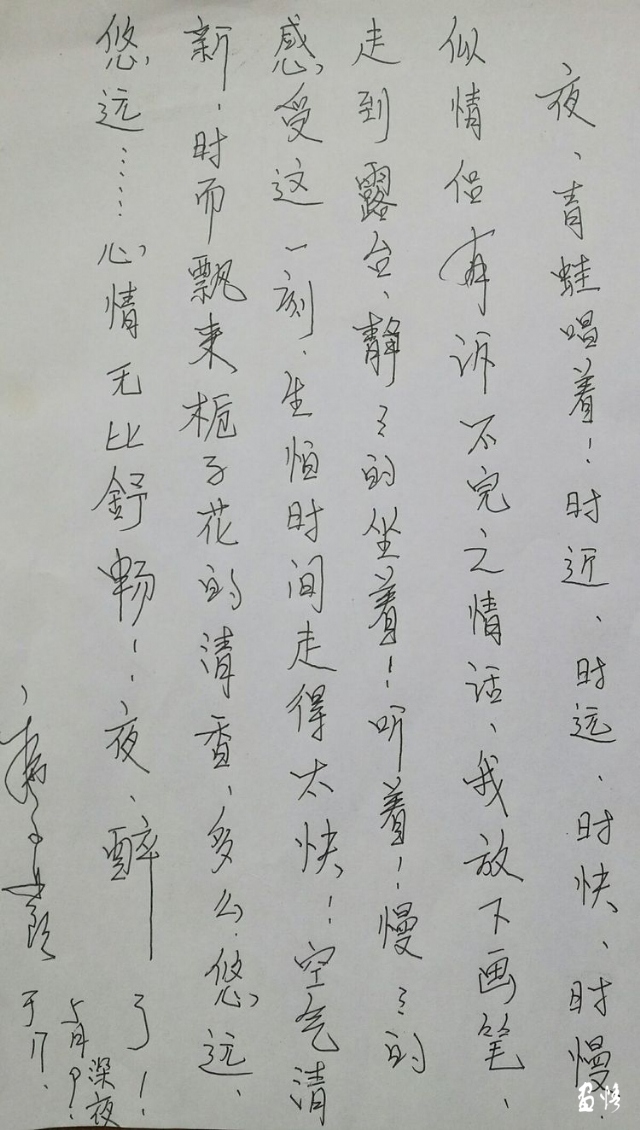 夜、青蛙唱着！时近、时远、时快、时慢.
似情侣有诉不完之情话、我放下画笔、
走到露台、静ミ的坐着！听着！慢ミ的
感受这一刻.生恒时间走得太快！空气清
新.时而飘来栀子花的清香、多么悠远、
悠远……心情无比舒畅！夜、醉了！
于17.
5月9.
深夜